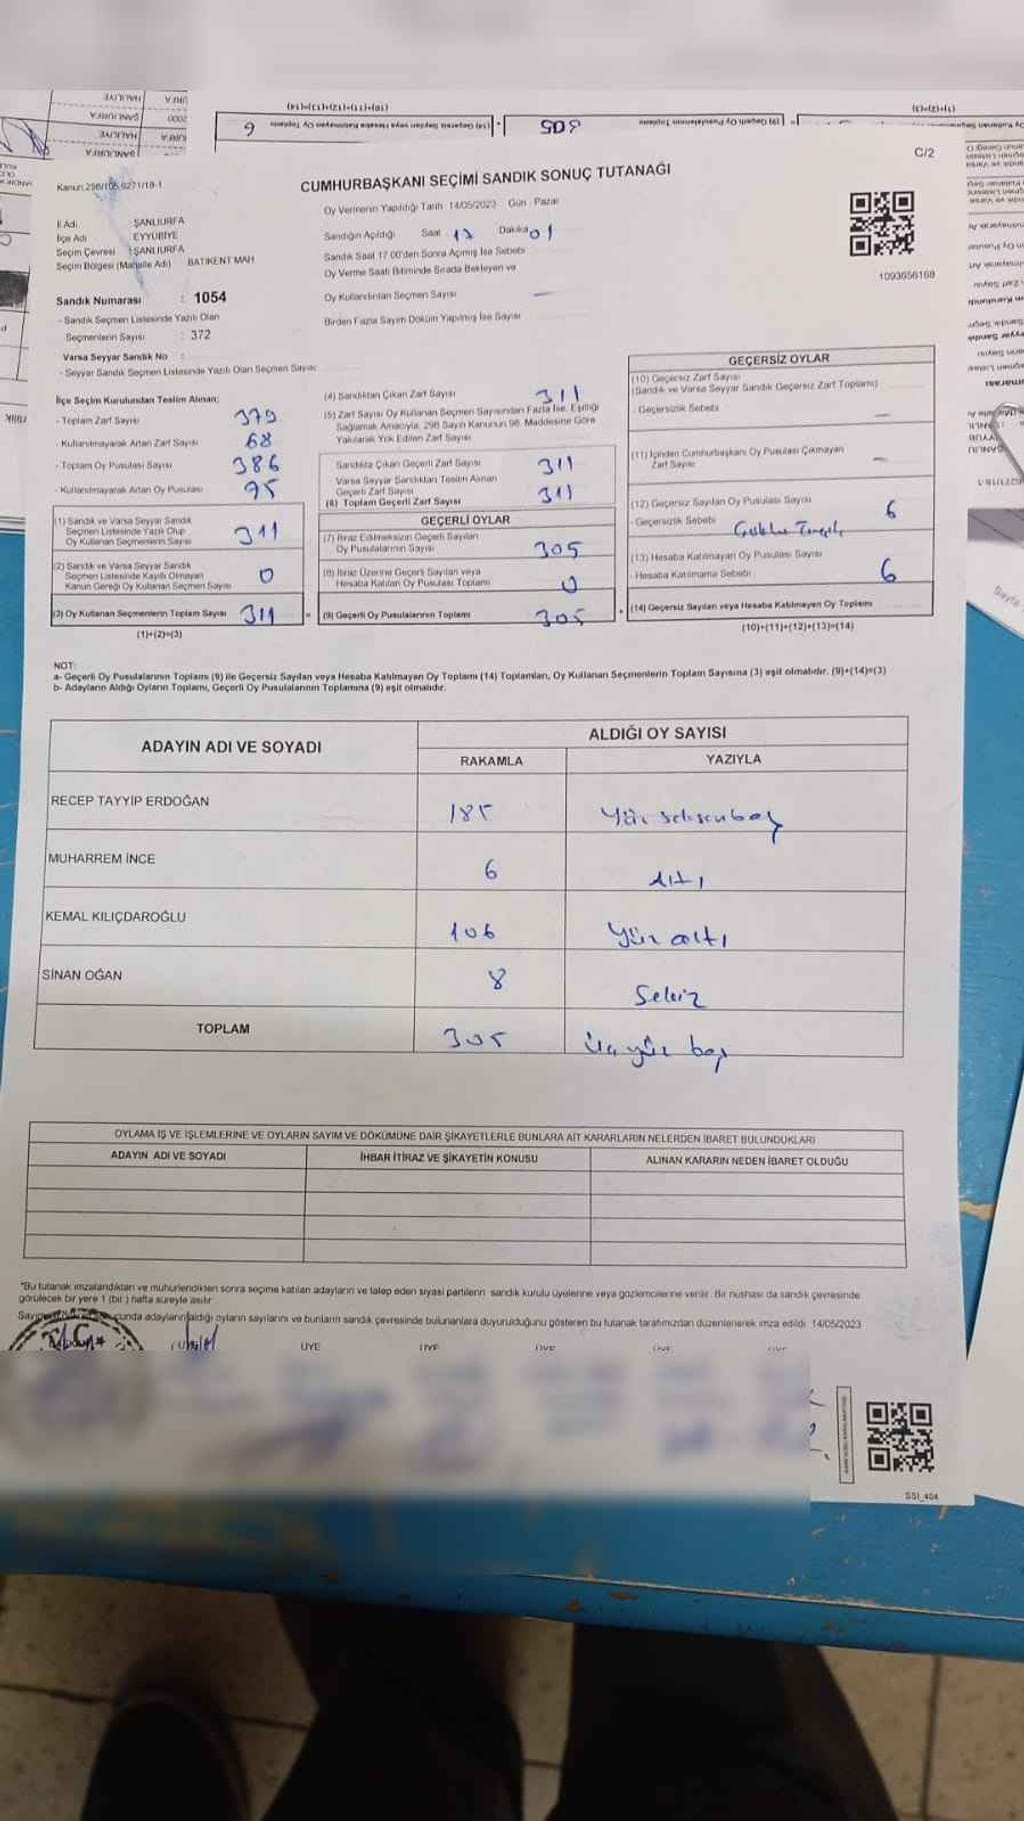 (10)+(11)+(12)+(13)=(14)
(1)+(2)=(3)
6
(14) Geçersiz Sayılan veya Hesaba Katılmayan Oy Toplamı
305
(9) Geçerli Oy Pusulalarının Toplamı
C/2
CUMHURBAŞKANI SEÇİMİ SANDIK SONUÇ TUTANAĞI
Oy Vermenin Yapıldığı Tarih 14/05/2023 Gün : Pazar
İl Adı : ŞANLIURFA
İlçe Adı EYYÜBİYE
Seçim Çevresi : ŞANLIURFA
Seçim Bölgesi (Mahalle Adı) BATIKENT MAH
Sandığın Açıldığı Saat 17 Dakika 01
Sandık Saat 17 00'den Sonra Açılmış İse Sebebi
Oy Verme Saati Bitiminde Sırada Bekleyen ve
Oy Kullandırılan Seçmen Sayısı —
Birden Fazla Sayım Döküm Yapılmış İse Sayısı
1093656168
Sandık Numarası : 1054
- Sandık Seçmen Listesinde Yazılı Olan
Seçmenlerin Sayısı : 372
Varsa Seyyar Sandık No :
- Seyyar Sandık Seçmen Listesinde Yazılı Olan Seçmen Sayısı:
İlçe Seçim Kurulundan Teslim Alınan;
- Toplam Zarf Sayısı 379
- Kullanılmayarak Artan Zarf Sayısı 68
- Toplam Oy Pusulası Sayısı 386
- Kullanılmayarak Artan Oy Pusulası 75
(1) Sandık ve Varsa Seyyar Sandık
Seçmen Listesinde Yazılı Olup
Oy Kullanan Seçmenlerin Sayısı 311
(2) Sandık ve Varsa Seyyar Sandık
Seçmen Listesinde Kayıtlı Olmayan
Kanun Gereği Oy Kullanan Seçmen Sayısı 0
(3) Oy Kullanan Seçmenlerin Toplam Sayısı 311 =
(1)+(2)=(3)
(4) Sandıktan Çıkan Zarf Sayısı 311
(5) Zarf Sayısı Oy Kullanan Seçmen Sayısından Fazla İse, Eşitliği
Sağlamak Amacıyla, 298 Sayılı Kanunun 98. Maddesine Göre
Yakılarak Yok Edilen Zarf Sayısı
Sandıkta Çıkan Geçerli Zarf Sayısı 311
Varsa Seyyar Sandıktan Teslim Alınan
Geçerli Zarf Sayısı
(6) Toplam Geçerli Zarf Sayısı 311
GEÇERLİ OYLAR
(7) İtiraz Edilmeksizin Geçerli Sayılan
Oy Pusulalarının Sayısı 305
(8) İtiraz Üzerine Geçerli Sayılan veya
Hesaba Katılan Oy Pusulası Toplamı 0
(9) Geçerli Oy Pusulalarının Toplamı 305 +
GEÇERSİZ OYLAR
(10) Geçersiz Zarf Sayısı
(Sandık ve Varsa Seyyar Sandık Geçersiz Zarf Toplamı)
- Geçersizlik Sebebi —
(11) İçinden Cumhurbaşkanı Oy Pusulası Çıkmayan
Zarf Sayısı —
(12) Geçersiz Sayılan Oy Pusulası Sayısı 6
- Geçersizlik Sebebi
(13) Hesaba Katılmayan Oy Pusulası Sayısı
- Hesaba Katılmama Sebebi 6
(14) Geçersiz Sayılan veya Hesaba Katılmayan Oy Toplamı
(10)+(11)+(12)+(13)=(14)
NOT:
a- Geçerli Oy Pusulalarının Toplamı (9) ile Geçersiz Sayılan veya Hesaba Katılmayan Oy Toplamı (14) Toplamları, Oy Kullanan Seçmenlerin Toplam Sayısına (3) eşit olmalıdır. (9)+(14)=(3)
b- Adayların Aldığı Oyların Toplamı, Geçerli Oy Pusulalarının Toplamına (9) eşit olmalıdır.
ADAYIN ADI VE SOYADI ALDIĞI OY SAYISI
RAKAMLA YAZIYLA
RECEP TAYYİP ERDOĞAN 185 Yüz seksenbeş
MUHARREM İNCE 6 Altı
KEMAL KILIÇDAROĞLU 106 Yüz altı
SİNAN OĞAN 8 Sekiz
TOPLAM 305 Üçyüz beş
OYLAMA İŞ VE İŞLEMLERİNE VE OYLARIN SAYIM VE DÖKÜMÜNE DAİR ŞİKAYETLERLE BUNLARA AİT KARARLARIN NELERDEN İBARET BULUNDUKLARI
ADAYIN ADI VE SOYADI İHBAR İTİRAZ VE ŞİKAYETİN KONUSU ALINAN KARARIN NEDEN İBARET OLDUĞU
*Bu tutanak imzalandıktan ve mühürlendikten sonra seçime katılan adayların ve talep eden siyasi partilerin sandık kurulu üyelerine veya gözlemcilerine verilir. Bir nüshası da sandık çevresinde
görülecek bir yere 1 (bir ) hafta süreyle asılır
adayların aldığı oyların sayılarını ve bunların sandık çevresinde bulunanlara duyurulduğunu gösteren bu tutanak tarafımızdan düzenlenerek imza edildi 14/05/2023
T.C. ÜYE ÜYE ÜYE ÜYE ÜYE
SSI_404